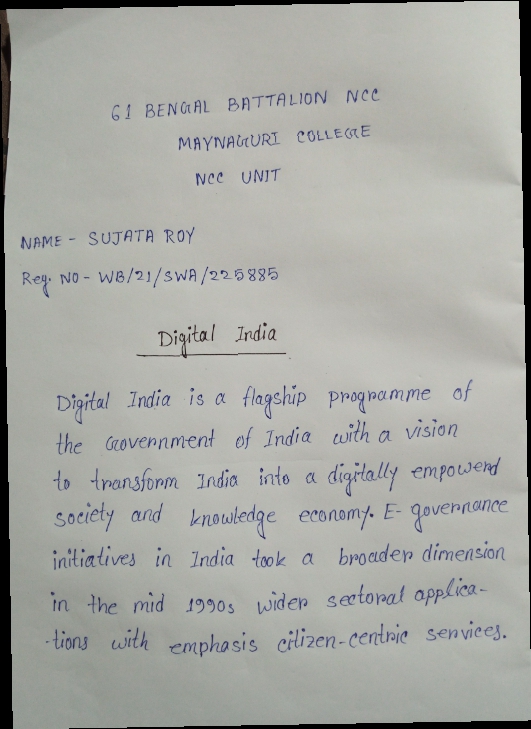 61 BENGAL BATTALION NCC
MAYNAGURI COLLEGE
NCC UNIT
NAME - SUJATA ROY
Reg. NO - WB/21/SWA/225885
Digital India
Digital India is a flagship programme of
the Government of India with a vision
to transform India into a digitally empowerd
society and knowledge economy. E- governance
initiatives in India took a broader dimension
in the mid 1990s wider sectoral applica-
-tions with emphasis citizen-centric services.